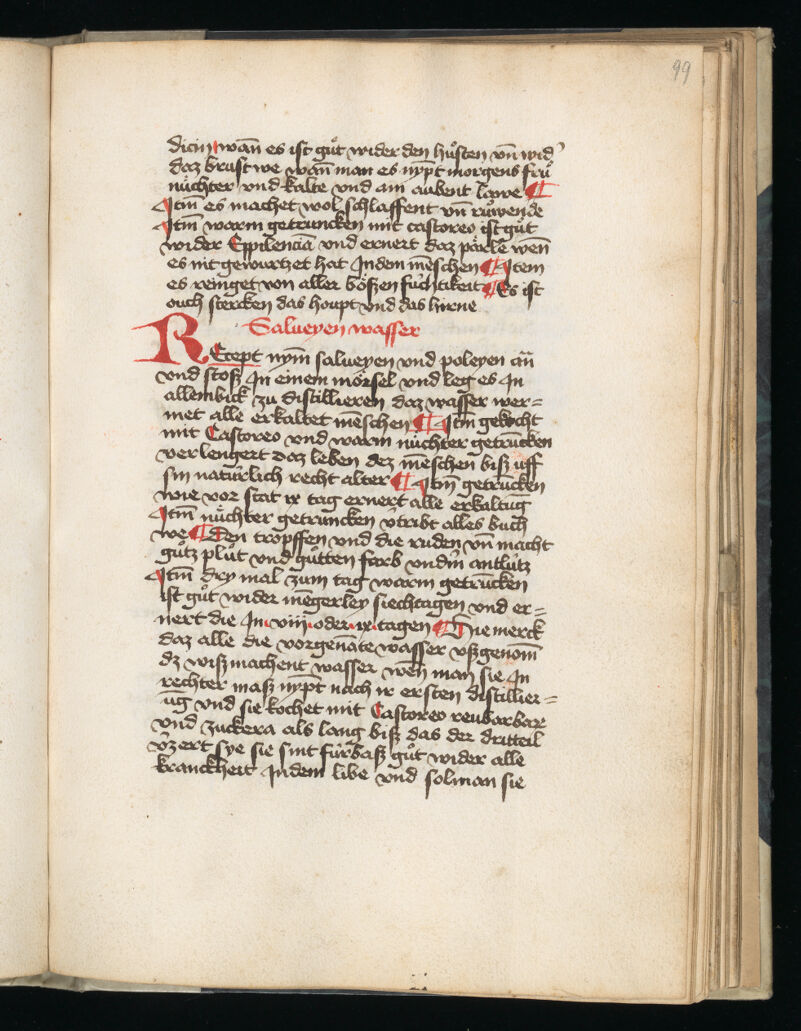 99
dicin wan̄ es ist guͦt wider den huͦsten vn̄ wid'
daz brustwe wan̄ man es nympt morgens fruͤ
nuͤchter vnd kalte vnd am aubent lawe ¶
Itm̄ es machet wol schlaffent vn̄ ruͤwende
Itm̄ warm getruncken mit castoreo ist guͦt
wider Eppilenciā vnd ernert daz parle wen̄
es nit gewurtzet hat Indem mēschen ¶ Item
es reinget von aller boͤszen fuchtkeit ¶ Es ist
ouch stercken das houpt vnd das hirne
Salueyen wasser
REcept nym̄ salueyen vnd poleyen an̄
vnd stosz In einem moͤrsel vnd leg es In
allembick zu distillieren daz wasser wer=
met alle erkaltet mēschen ¶ Itm̄ gekocht
mit Castoreo vnd warm nuͤchter getrūcken
verlengert daz leben dez mēschen bisz uff
sin natuͤrlich recht alter ¶ Itm̄ getrūcken
wie vor stat ix tag ernert alle erkaltūg
Itm̄ nuͤchter getruncken v̄tribt alles buch
we ¶ Den tropffen vnd die ruden vn̄ macht
guͦtz pluͦt vnd guͦtten farb vnd im̄ antluͤtz
Itm̄ dry mal zum tag warm getrūcken
ist guͦt wider mēgerley siechtagen vnd er=
nert die In viii oder ix tagen ¶ Hie merck
daz alle die vorgenāte wasser vszgenom̄
dz wisz machent wasser wen̄ man sie In
rechter masz nympt nach ir ersten distillier=
ūg vnd sie kochet mit Castoreo reubarbare
vnd zuckera als lang bisz das der dritteil
v̄zert sye sie sint fuͤrbasz guͦt wider alle
kranckheit Indem libe vnd sol man sie